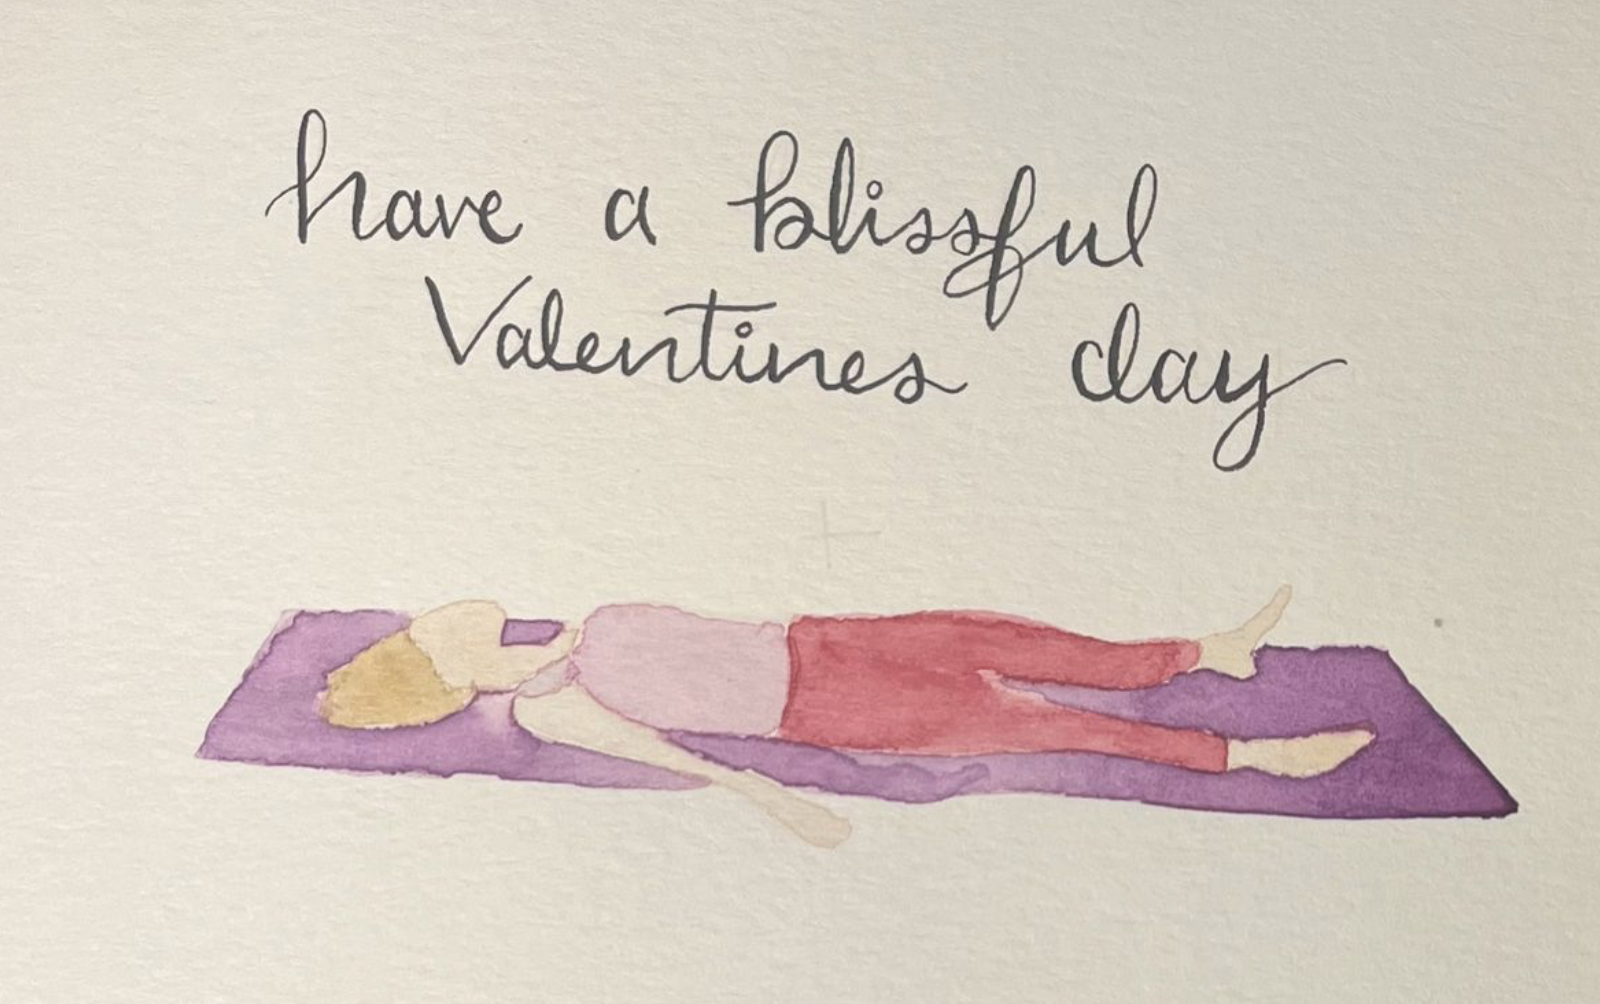 have a blissful
Valentines day